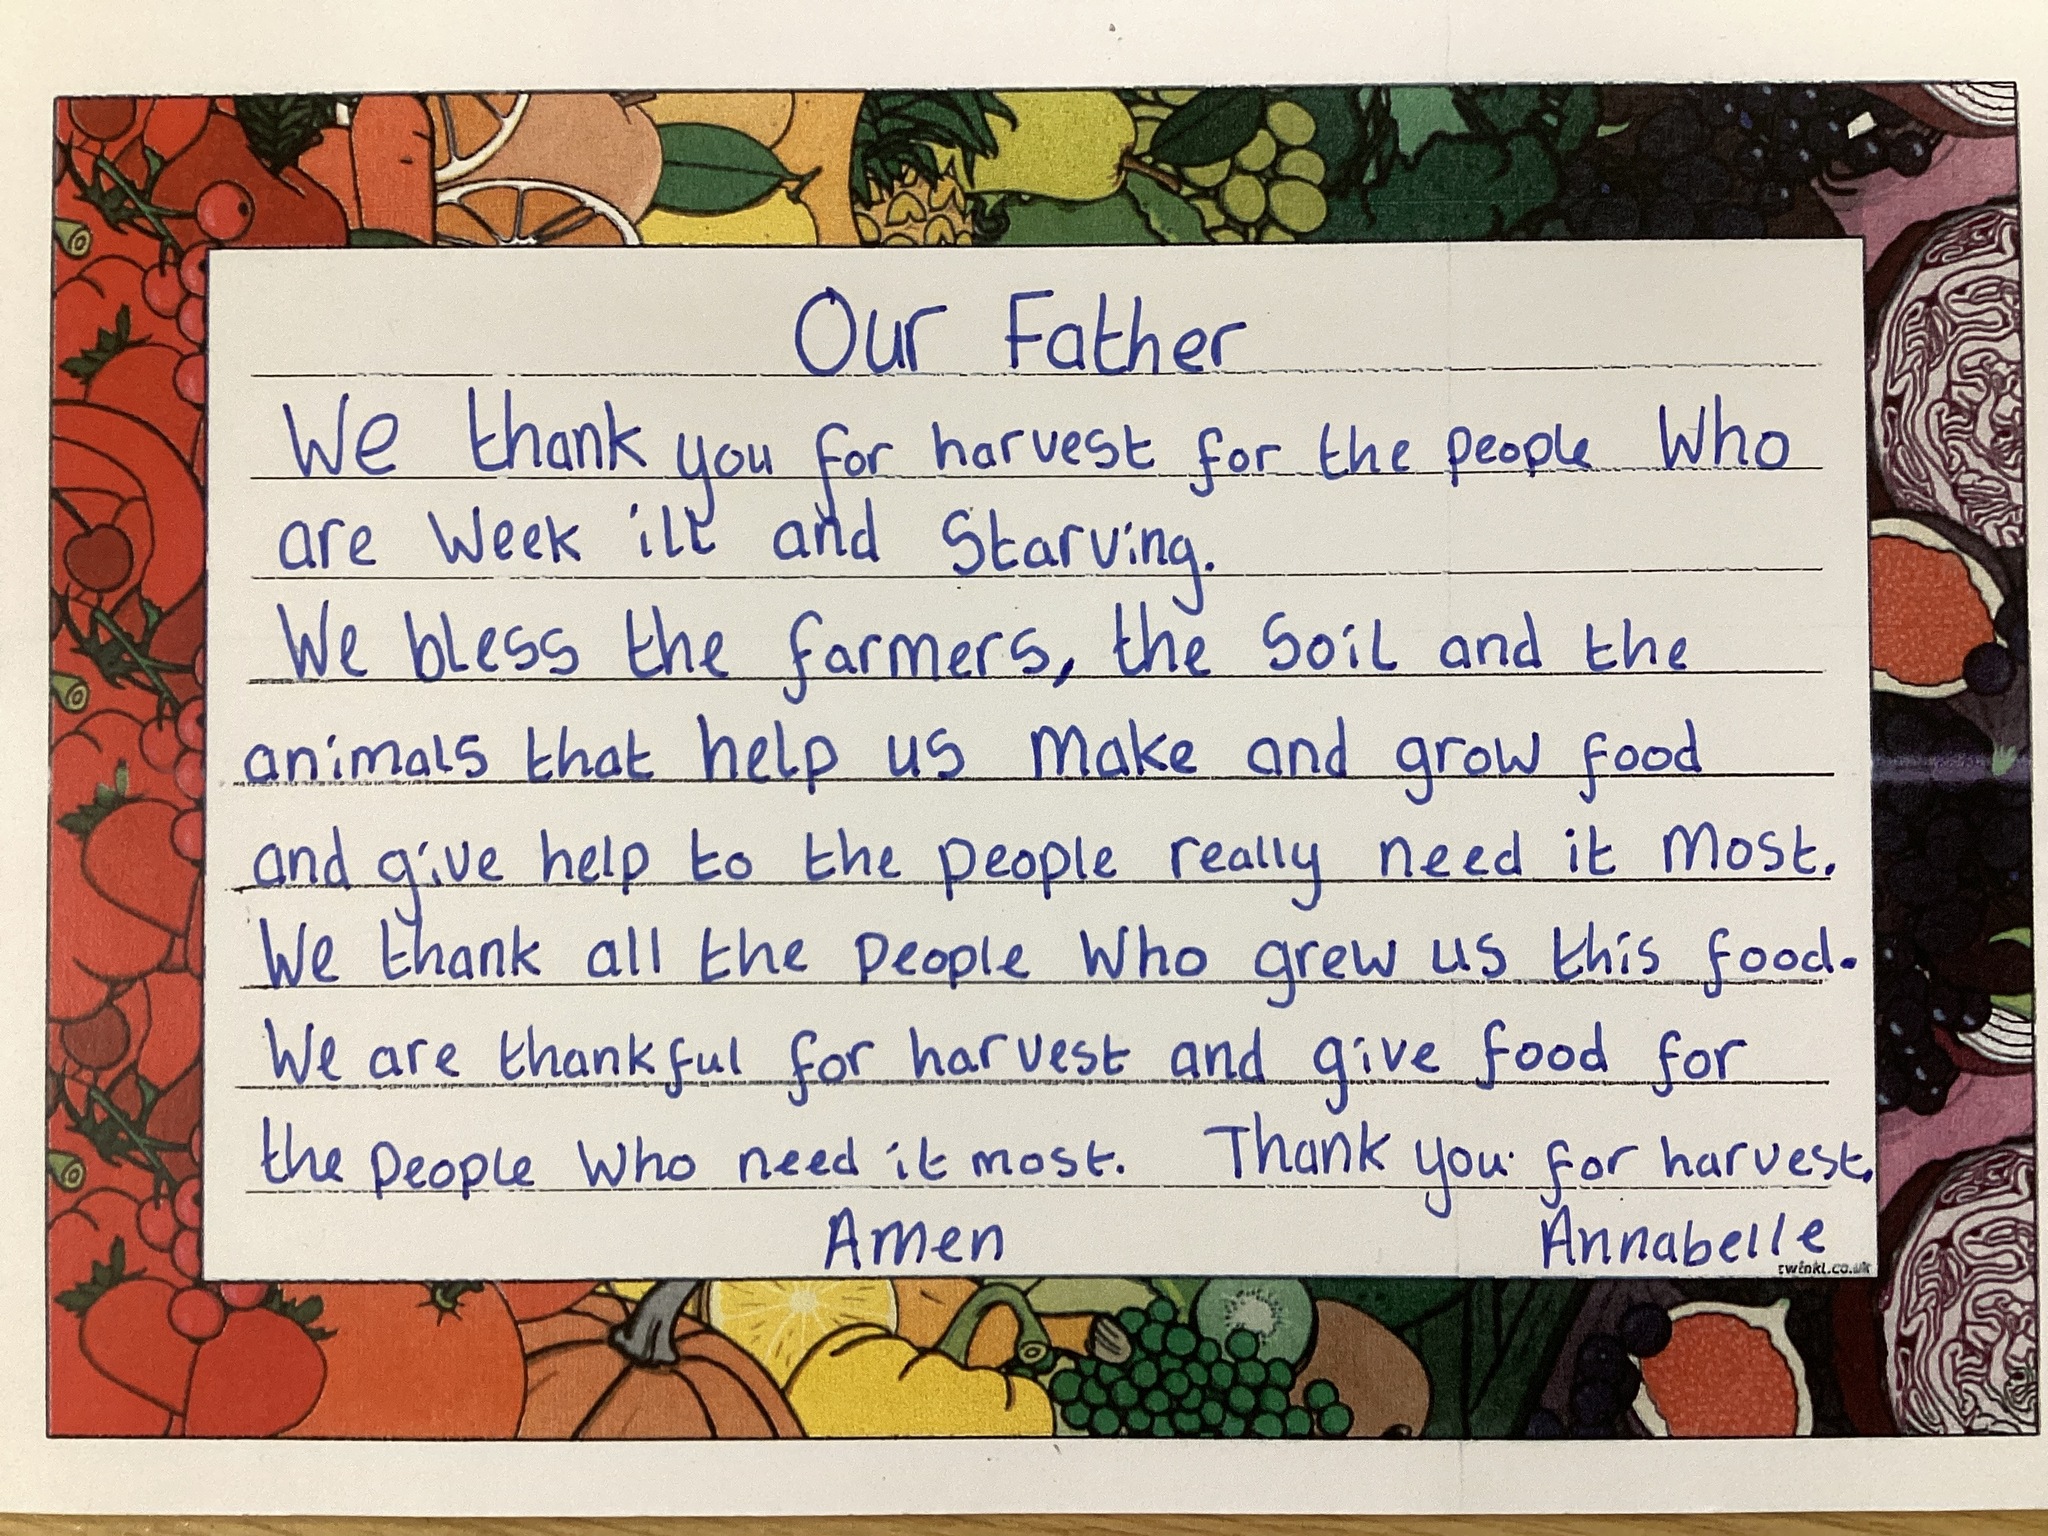 Our Father
We thank you for harvest for the people Who
are Week ill and Starving.
We bless the farmers, the Soil and the
animals that help us make and grow food
and give help to the people really need it most.
We thank all the People Who grew us this food.
We are thankful for harvest and give food for
the People Who need it most. Thank you for harvest.
Amen Annabelle
twinkl.co.uk